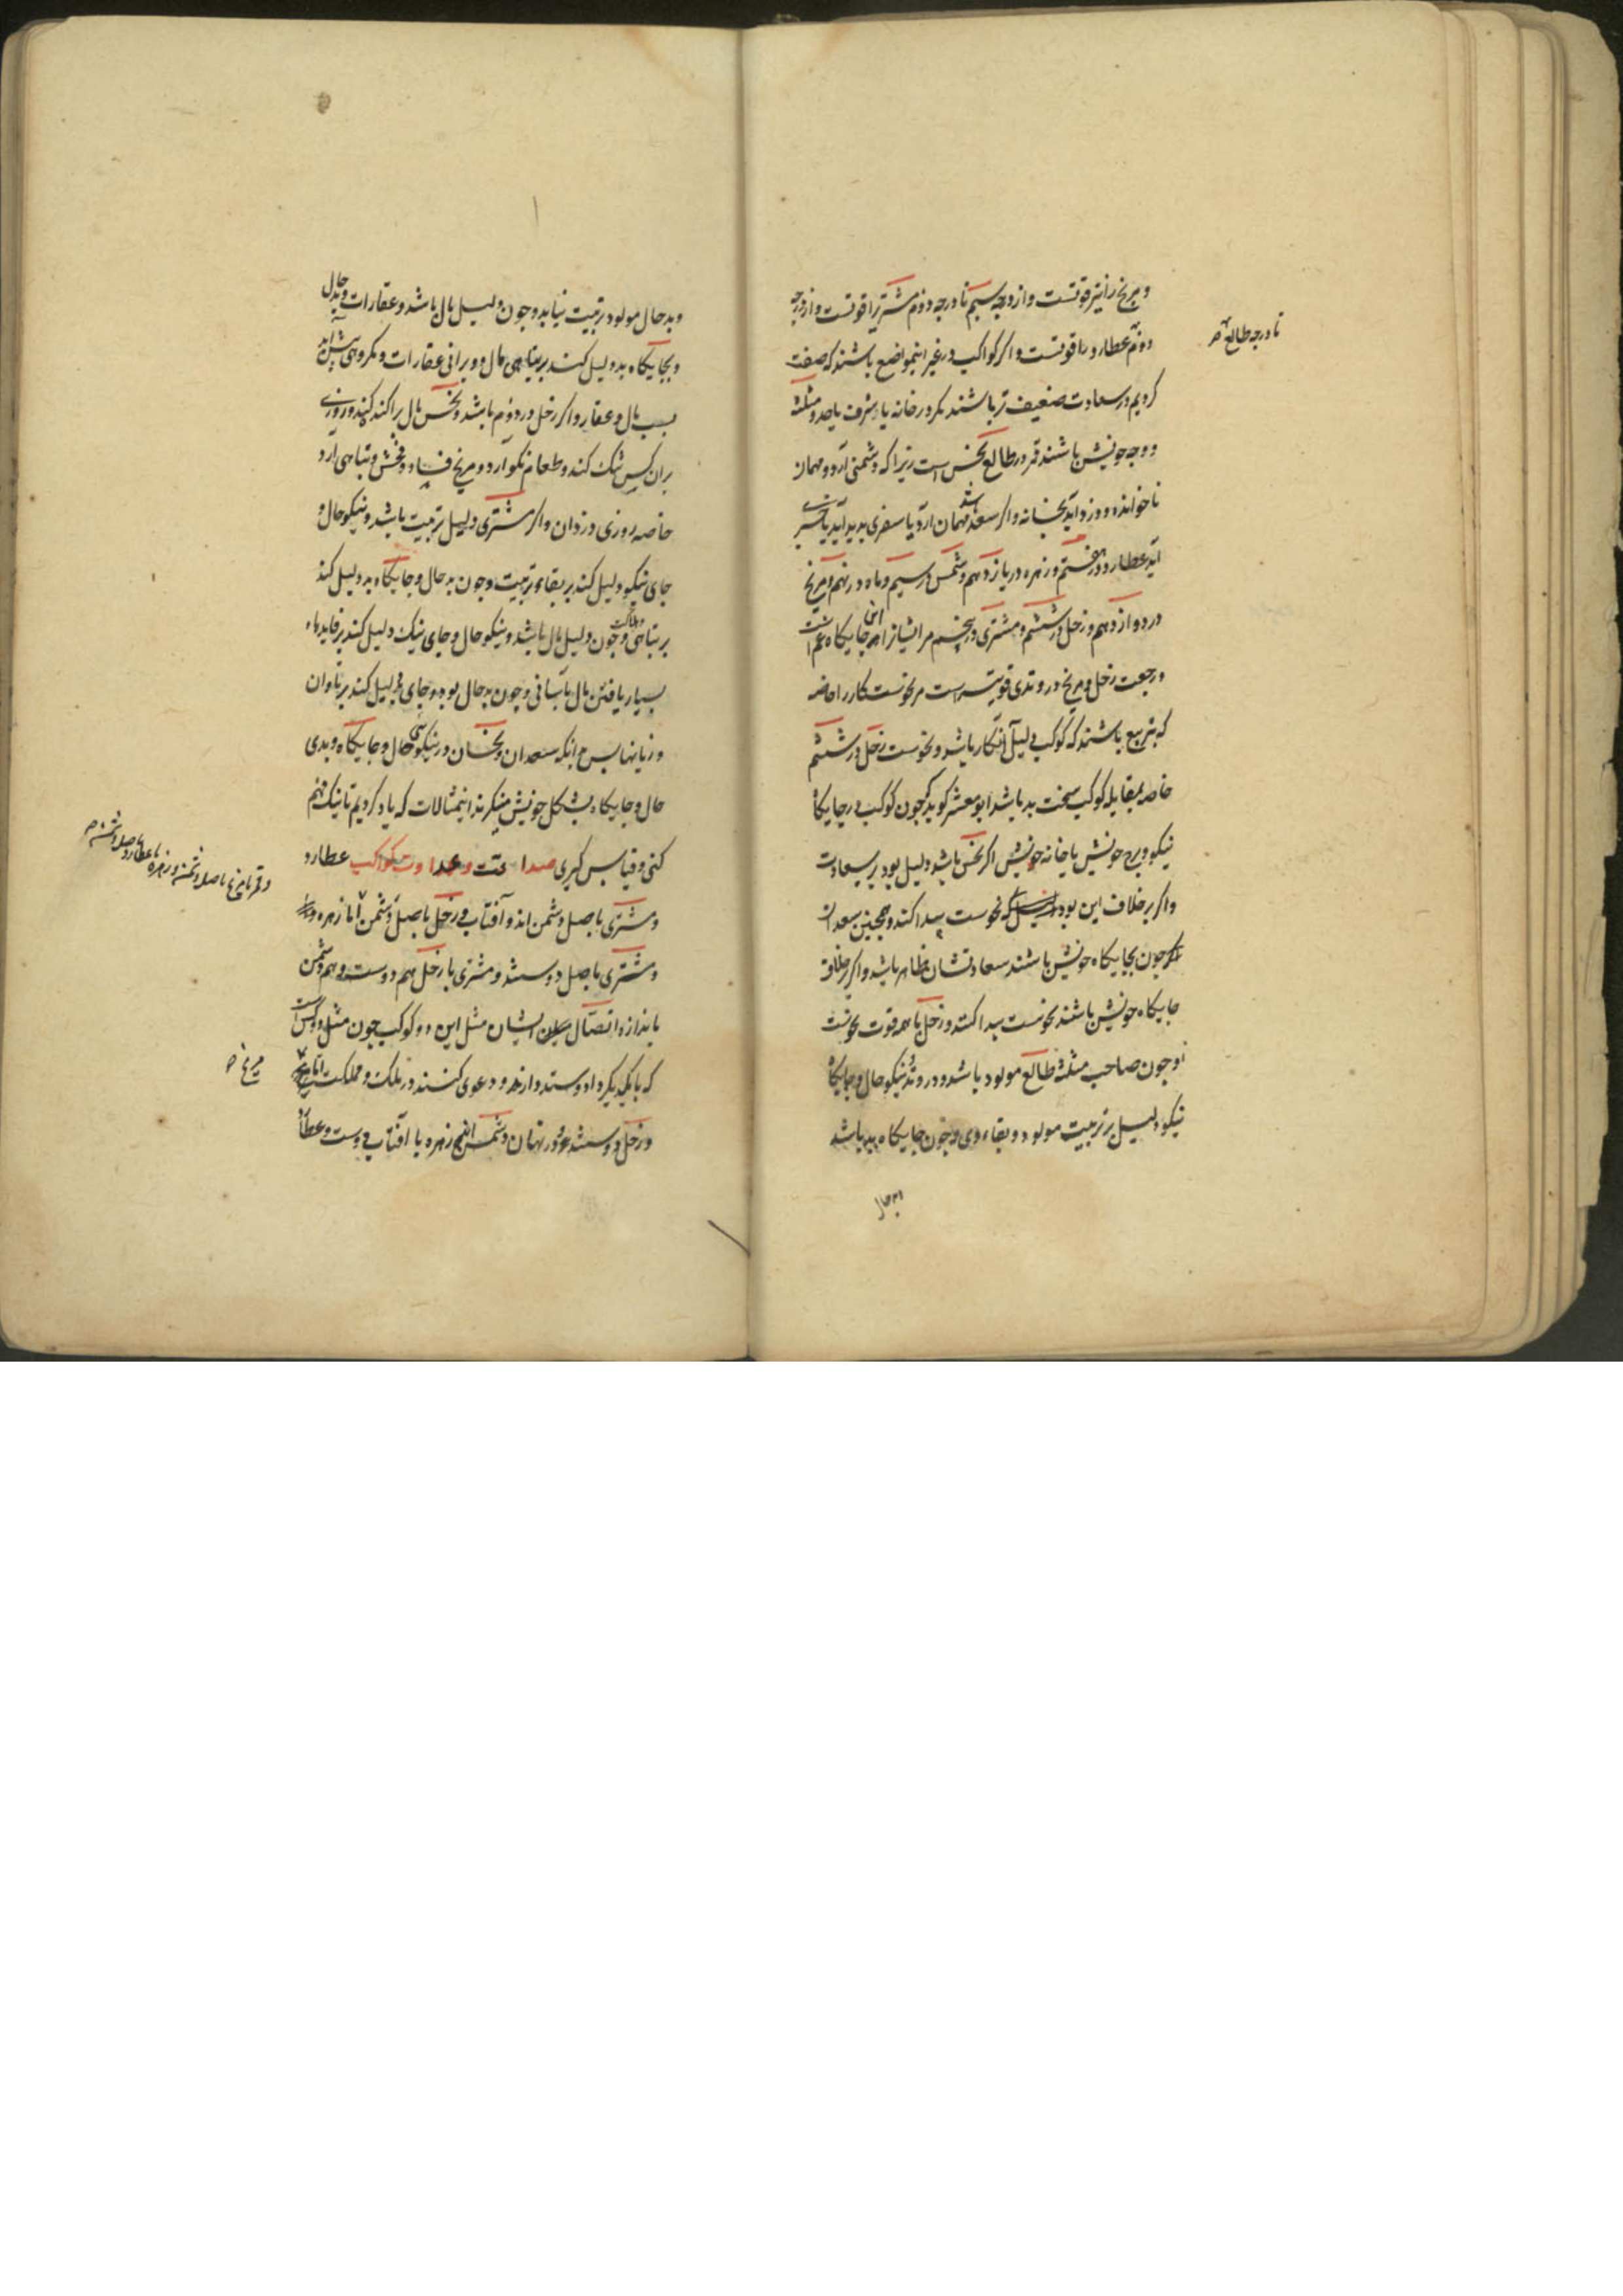 و مریخ را نیز قوتست و از درجه سیم تا درجه دوم مشتریرا قوتست و از درجه
دوم عطارد را قوتست و اکر کواکب در غیر اینمواضع باشند که صفت
کردیم در سعادت ضعیف تر باشند مکر در خانه یا شرف یا حد و مثلثه
و وجه خویش باشند قمر در طالع نحس است زیرا که دشمنی آرد و مهمان
ناخوانده و دزد آید بخانه و اکر سعد باشد مهمان آرد یا سفری پدید آید یا خبری
آید عطارد در هفتم و زهره در یازدهم و شمس در سیم و ماه در نهم و مریخ
در دوازدهم و زحل در ششم و مشتری در پنجم مر ایشانرا این جایکاه غم است
و رجعت زحل و مریخ در وتدی قویتر است مر نحوست کار را خاصه
که بتربیع باشند که کوکب دلیل آنکار باشد و نحوست زحل در ششم
خاصه بمقابله کوکب سخت بد باشد ابو معشر کوید که چون کوکب در جایکاه
نیکو و برج خویش یا خانه خویش اکر نحس باشد دلیل بود بر سعادت
و اکر بر خلاف این بود نحوست پیدا کند و همچنین سعدان
اکر چون بجایکاه خویش باشند سعادتشان ظاهر باشد و اکر بر خلاف
جایکاه خویش باشند نحوست پیدا کنند و زحل با همه قوت نحوست
و چون صاحب مثلثه طالع مولود باشد و در وتد و نیکو حال و جایکاه
نیکو دلیل بر تربیت مولود و بقاء وی و چون جایکاه بد باشد
تا درجه طالع صح
و بد حال مولود تربیت نیابد و چون دلیل مال باشد و عقارات و بد حال
و بجایکاه بد دلیل کند بر تباهی مال و ویرانی عقارات و مکروهی پیش آید
بسبب مال و عقار و اکر زحل در دوم باشد و نحس مال پراکنده کند و روزی
بران کس تنک کند و طعام نکو آرد و مریخ فساد و فحش و تباهی آرد
خاصه روزی دزدان و اکر مشتری دلیل تربیت باشد و نیکو حال و
جای نیکو دلیل کند بر بقاء تربیت و چون بد حال و جایکاه بد دلیل کند
بر تباهی و هلاکت و چون دلیل مال باشد و نیکو حال و جای نیک دلیل کند بر فایدهاء
بسیار یافتن مال بآسانی و چون بد حال بود و جای بد دلیل کند بر تاوان
و زیانها پس بدانکه سعدان و نحسان در نیکوئی حال و جایکاه و بدی
حال و جایکاه بشکل خویش مینکر بدین مثالات که یاد کردیم تا نیک فهم
کنی و قیاس کیری صداقت و عداوت کواکب عطارد
و مشتری باصل دشمن اند و آفتاب و زحل باصل دشمن اما زهره
و مشتری باصل دوستند و مشتری با زحل هم دوست و هم دشمن
باندازه اتصال میان ایشان مثل این دو کوکب چون مثل دو کس است
که با یکدیکر داد و ستد دارند و دعوی کنند در ملک و مملکت اما
و زحل دوستند در نهان و شمس زهره با آفتاب دوست و عطارد
و قمر با مریخ باصل دشمن و زهره با عطارد باصل دشمن صح
مریخ صح